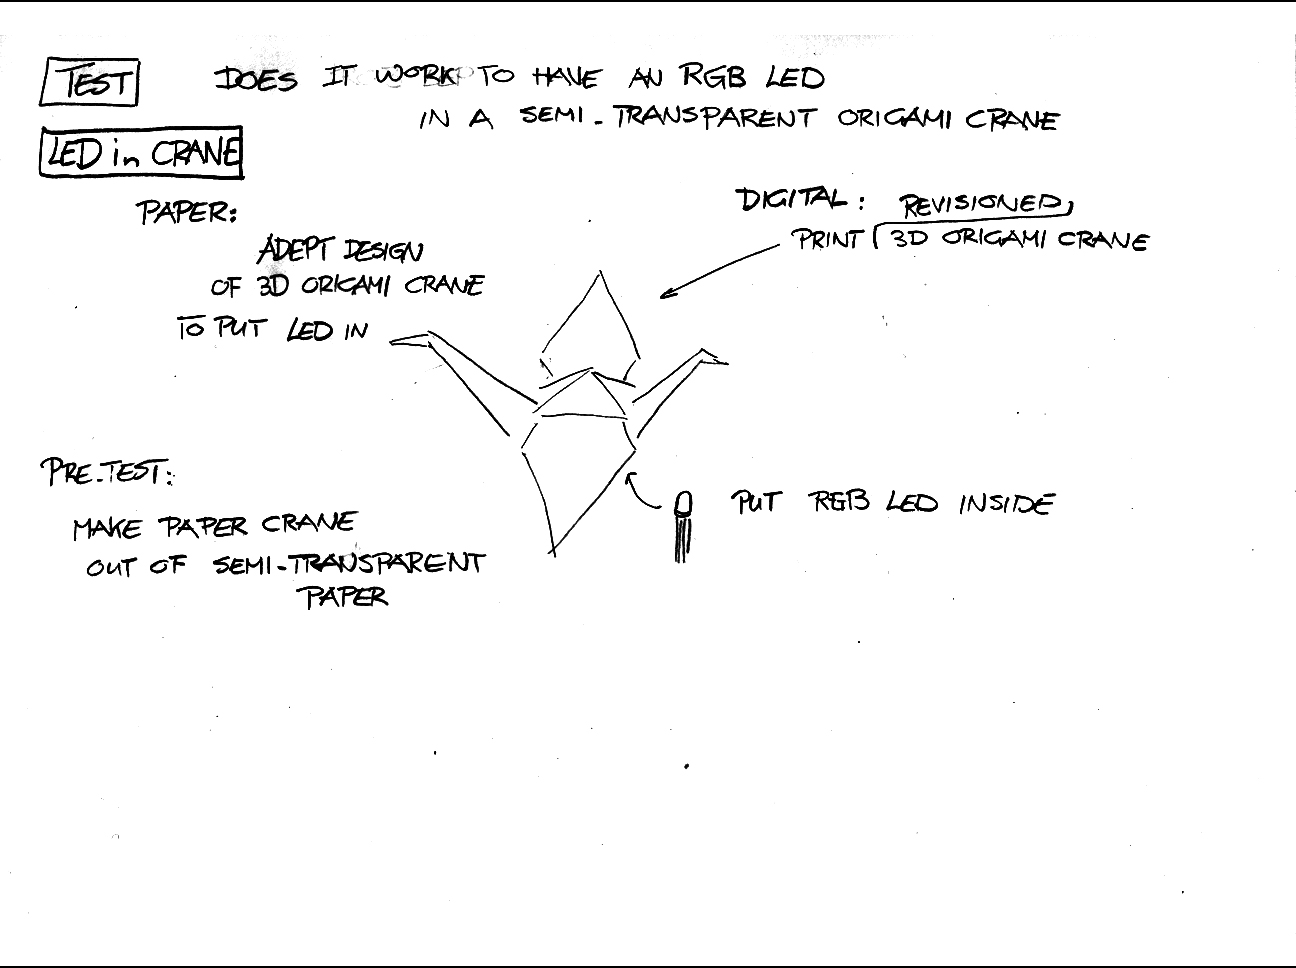 TEST
DOES IT WORK TO HAVE AN RGB LED
IN A SEMI-TRANSPARENT ORIGAMI CRANE
LED in CRANE
PAPER:
ADEPT DESIGN
OF 3D ORIGAMI CRANE
TO PUT LED IN
DIGITAL: REVISIONED
PRINT 3D ORIGAMI CRANE
PRE-TEST:
MAKE PAPER CRANE
OUT OF SEMI-TRANSPARENT
PAPER
PUT RGB LED INSIDE